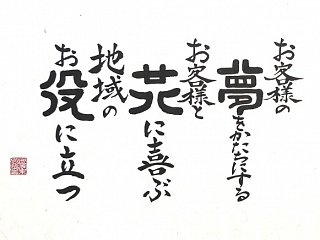 お客様の
夢をかたちにする
お客様と
共に喜ぶ
地域の
お役に立つ